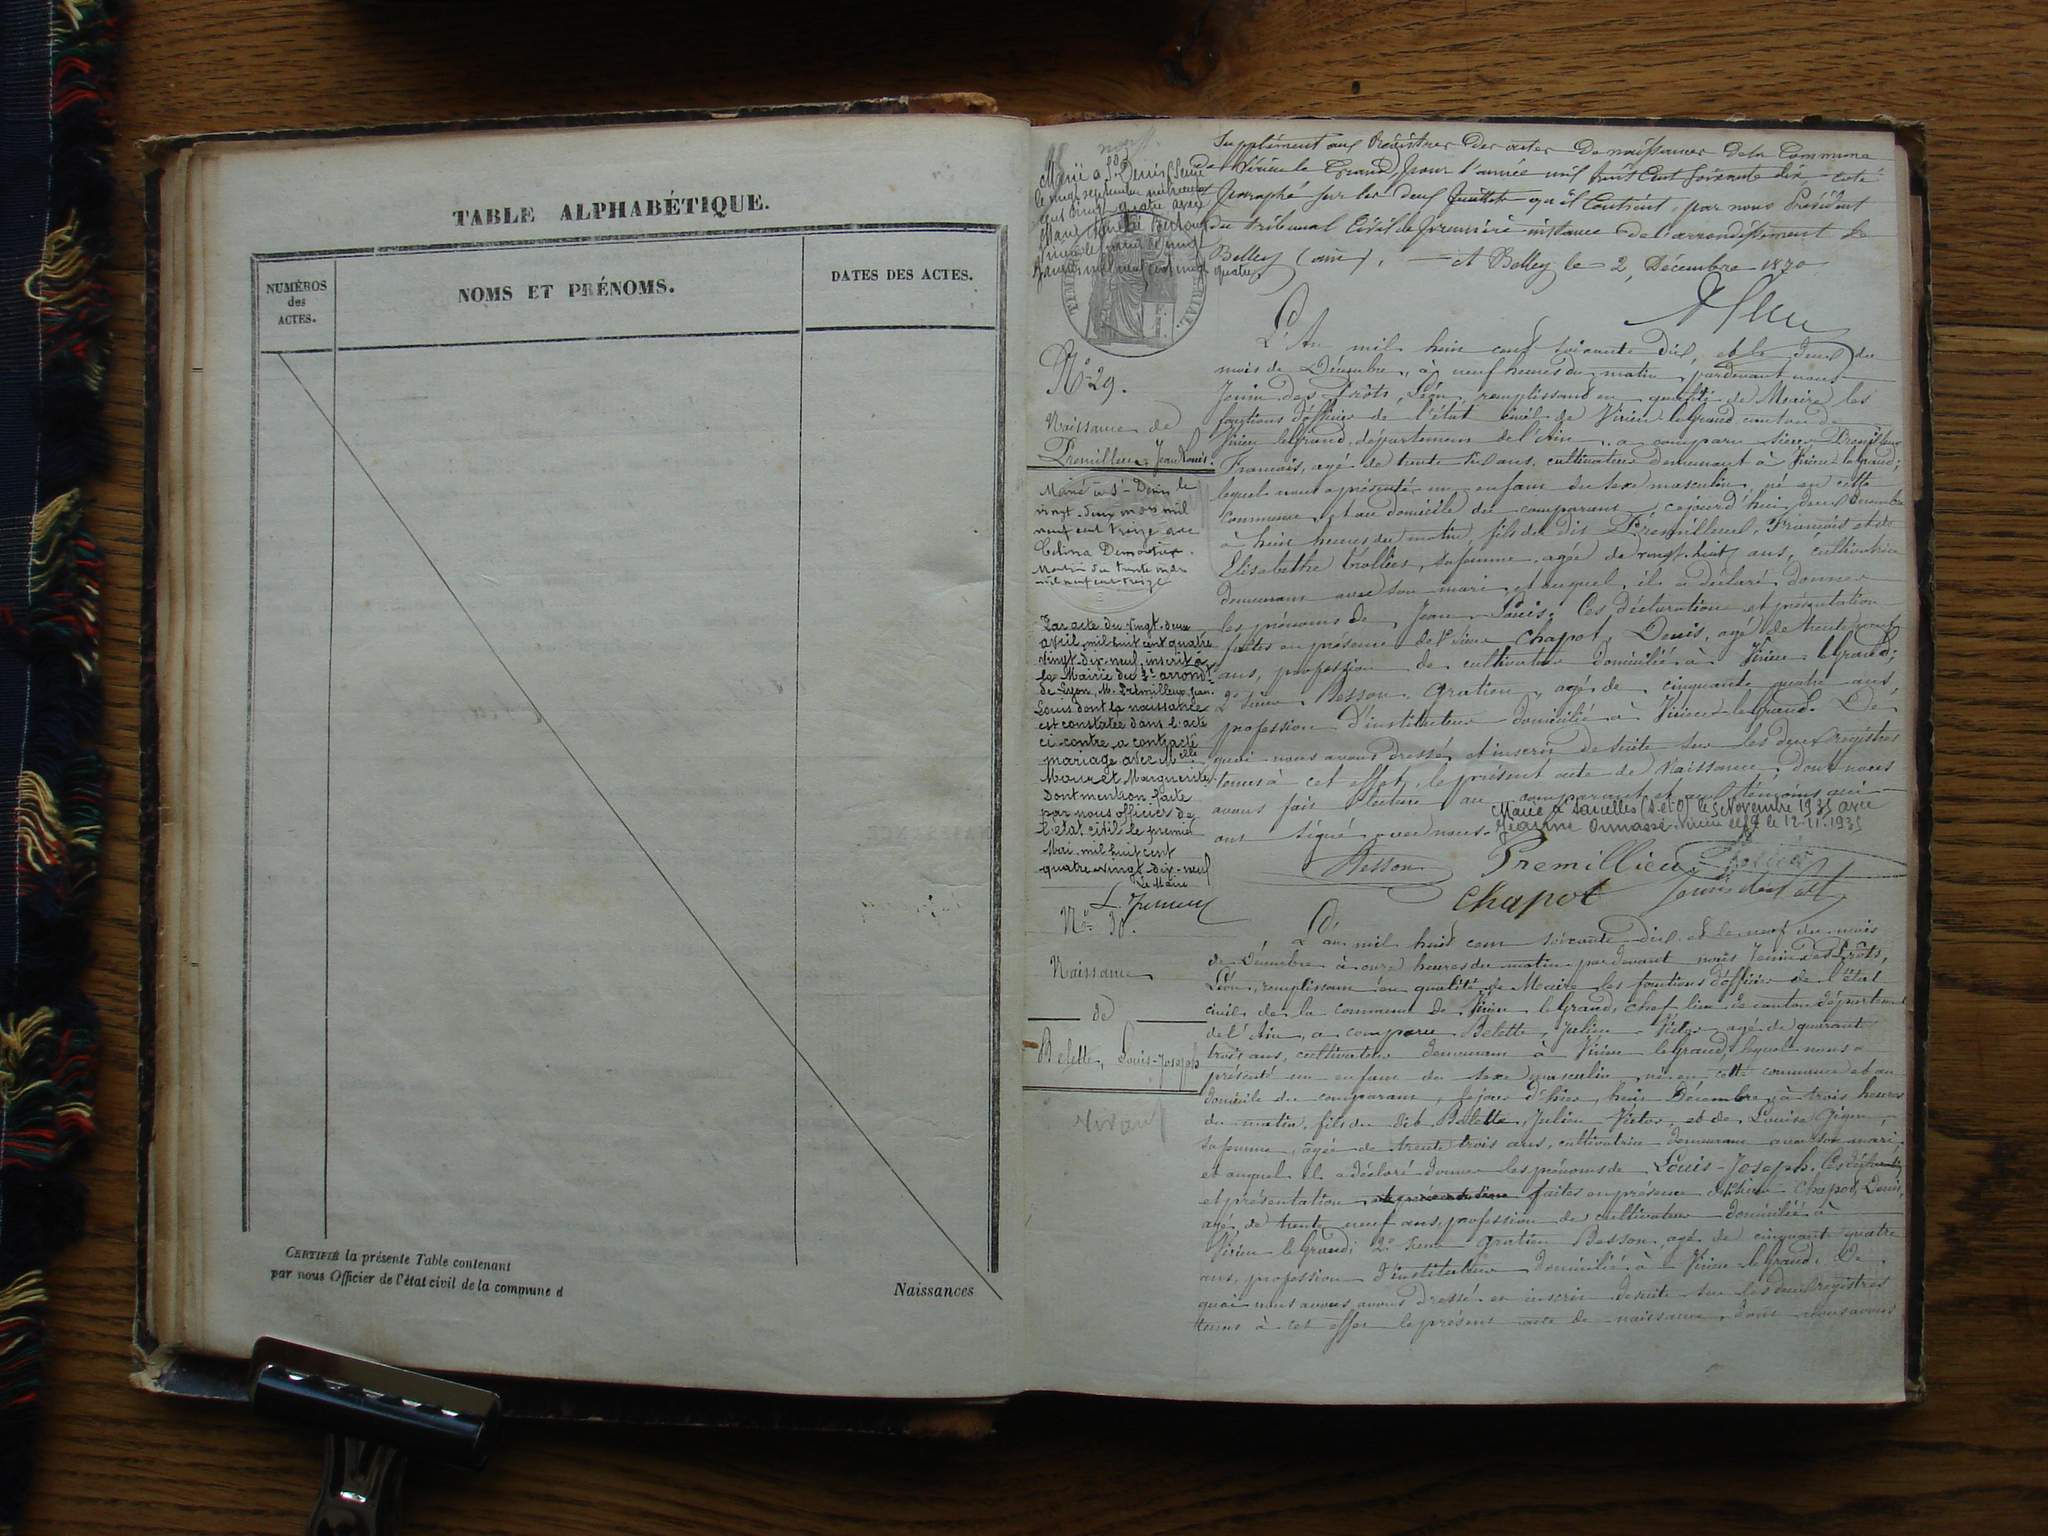 TABLE ALPHABÉTIQUE.
NUMÉROS
des
ACTES.
NOMS ET PRÉNOMS.
DATES DES ACTES.
CERTIFIÉ la présente Table contenant
par nous Officier de l'état civil de la commune d
Naissances
Supplément aux Régistres des actes de naissances de la Commune
de Virieu le Grand, pour l'année mil huit Cent soixante dix coté
paraphé sur les deux feuillets qu'il Contient, par nous Président
du tribunal Civil de première instance de l'arrondissement de
Belley (ain). A Belley le 2, Décembre 1870
Marié à St Denis (Seine
No 29.
Naissance de
Premillieu, Jean Louis.
Marié à St Denis le
vingt-deux mars mil
neuf cent treize avec
Celina
Mention du trente mars
mil neuf cent treize
Par acte du vingt-deux
avril mil huit cent quatre
vingt-dix-neuf, inscrit à
la Mairie du 2e arrondt
de Lyon, M. Prémillieux, Jean
Louis dont la naissance
est constatée dans l'acte
ci-contre a contracté
mariage avec Melle
Mouret Marguerite
Dont mention faite
par nous officier de
l'état civil le premier
Mai mil huit cent
quatre-vingt-dix-neuf
Le Maire
L'An mil huit cent soixante dix, et le deux du
mois de Décembre, à neuf heures du matin, pardevant nous
Jenin des Prôts, Léon, remplissant en qualité de Maire les
fonctions d'officier de l'état civil de Virieu le Grand canton de
Virieu le Grand, département de l'Ain, a comparu sieur
François, agé de trente six ans, cultivateur demeurant à Virieu le Grand;
lequel nous a présenté un enfant du sexe masculin, né en cette
Commune, et au domicile du comparant, cejourd'hui deux Décembre
à huit heures du matin, fils du dit Prémillieux, François et de
Elisabethe Trolliet, sa femme, agée de vingt-huit ans, cultivatrice
demeurant avec son mari, et auquel il a déclaré donner
les prénoms de Jean-Louis. Ces déclaration et présentation
faites en présence de 1° sieur Chapot, Denis, agé de trente neuf
ans, profession de cultivateur domicilié à Virieu le Grand;
2° sieur Besson, Gratien, agé de cinquante quatre ans,
profession d'instituteur domicilié à Virieu-le-Grand. De
quoi nous avons dressé et inscrit de suite sur les deux registres
tenus à cet effet, le présent acte de Naissance, dont nous
avons fait lecture au comparant et aux témoins qui
ont signé avec nous.
Marié à Sarcelles (S-et-O) le 5 Novembre 1935 avec
Jeanne le 12-11-1935
Besson Premillieu
Chapot
No 30.
Naissance
de
Belette, Louis-Joseph
vivant
L'an mil huit cent soixante dix et le neuf du mois
de Décembre à onze heures du matin pardevant nous Jenin des Prôts,
Léon, remplissant en qualité de Maire les fonctions d'officier de l'état
civil de la commune de Virieu le Grand, chef lieu de canton département
de l'Ain, a comparu Belette, Julien-Victor agé de quarante
trois ans, cultivateur demeurant à Virieu le Grand, lequel nous a
présenté un enfant du sexe masculin, né en cette commune et au
domicile du comparant, le jour d'hier, huit Décembre, à trois heures
du matin, fils du dit Belette, Julien-Victor et de Louise
sa femme, agée de trente trois ans, cultivatrice demeurant avec son mari
et auquel il a déclaré donner les prénoms de Louis-Joseph. Ces déclaration
et présentation faites en présence de 1° sieur Chapot, Denis,
agé de trente neuf ans, profession de cultivateur domicilié à
Virieu le Grand; 2° sieur Gratien Besson, agé de cinquante quatre
ans, profession d'instituteur domicilié à Virieu-le-Grand. De
quoi nous avons avons dressé et inscrit de suite sur les deux registres
tenus à cet effet le présent acte de naissance, dont nous avons